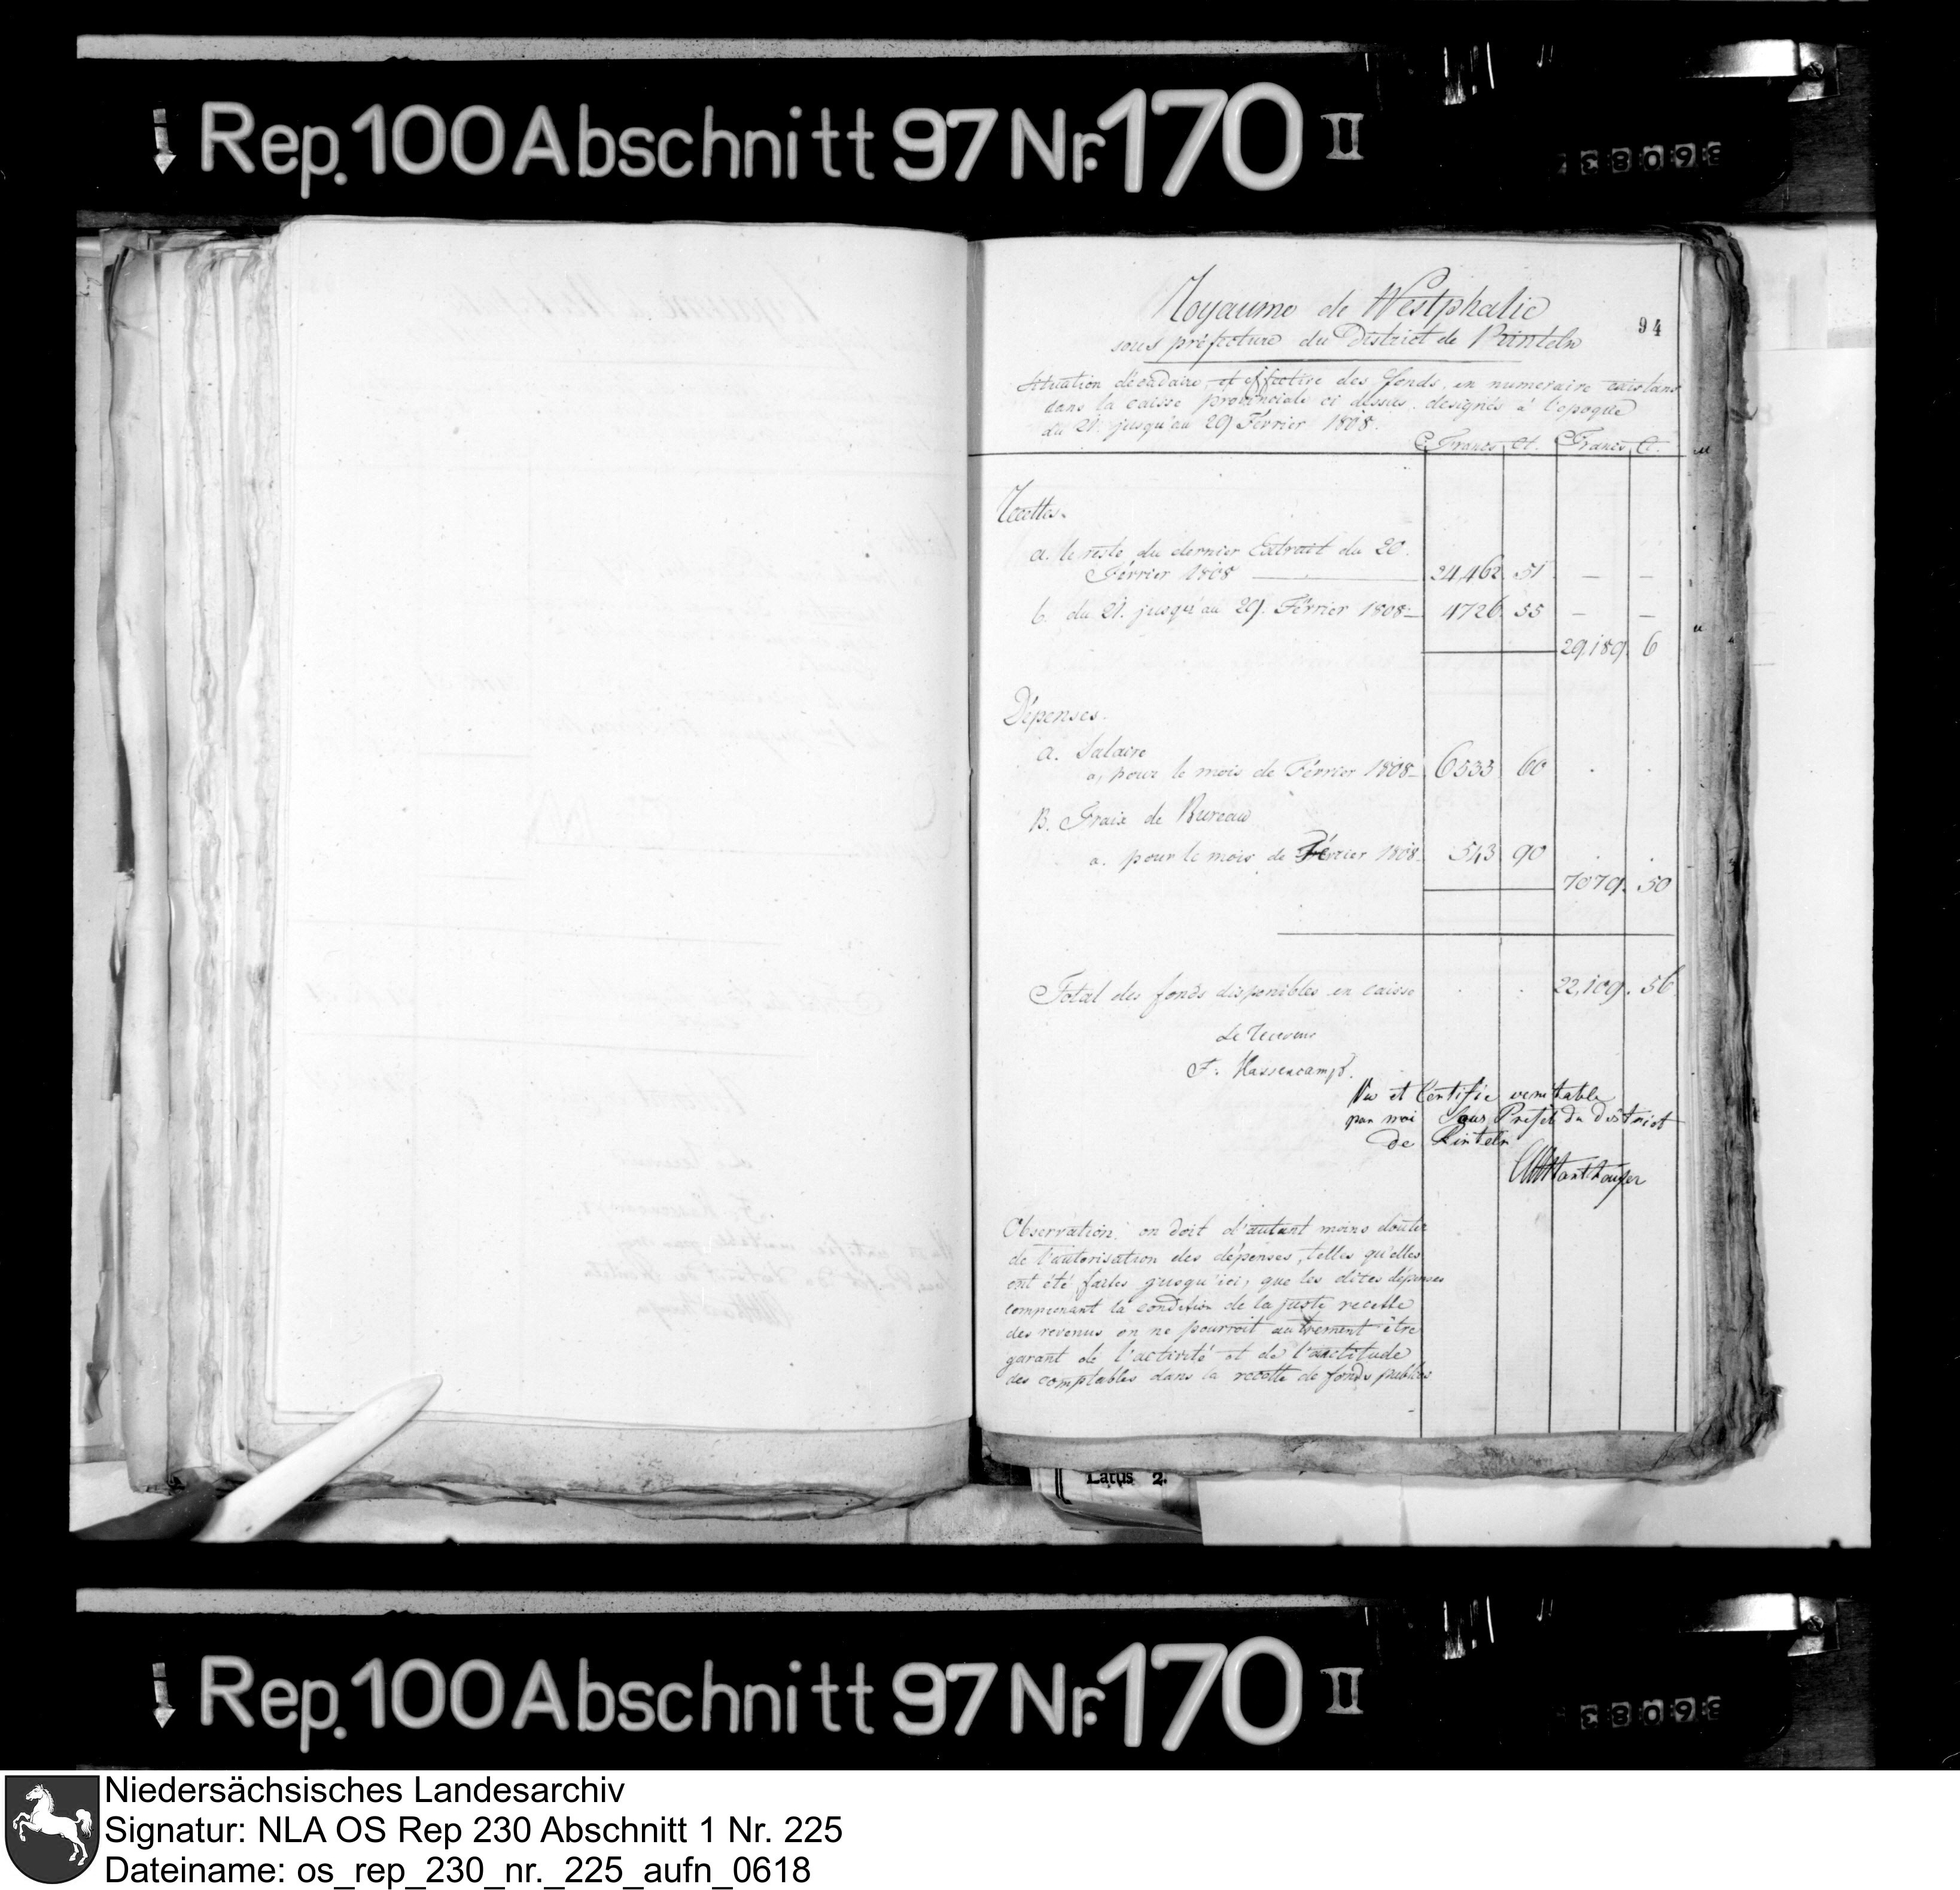 Rep. 100 Abschnitt 97 Nr. 170 II
Royaume de Westphalie
94
sous préfecture du District de Rinteln
Situation décadaire et effective des fonds, en numeraire existans
dans la caisse provinciale ci dessus designés à l'epoque
du 21. jusqu'au 29 Février 1808.
Francs Ct. Francs Ct.
Recettes.
a. le reste du dernier Extrait du 20.
Février 1808 24,462. 51 — —
b. du 21. jusqu'au 29. Février 1808 4726. 55 — —
29,189. 6
Dépenses.
a. Salaire
a, pour le mois de Février 1808 6533 60
B. Fraix de Bureau
a. pour le mois de Février 1808 543 90
7079. 50
Total des fonds disponibles en caisse 22,109. 56
Le Receveur
F. Hassencamp.
Vu et Certifie veritable
par moi Sous Prefet du District
de Rinteln
Observation: on doit d'autant moins douter
de l'autorisation des dépenses, telles qu'elles
ont été faites jusqu'ici, que les dites dépenses
comprenant la condition de la juste recette
des revenus on ne pourroit autrement être
garant de l'activité et de l'exactitude
des comptables dans la recette de fonds publics
Latus 2.
Rep. 100 Abschnitt 97 Nr. 170 II
Niedersächsisches Landesarchiv
Signatur: NLA OS Rep 230 Abschnitt 1 Nr. 225
Dateiname: os_rep_230_nr._225_aufn_0618